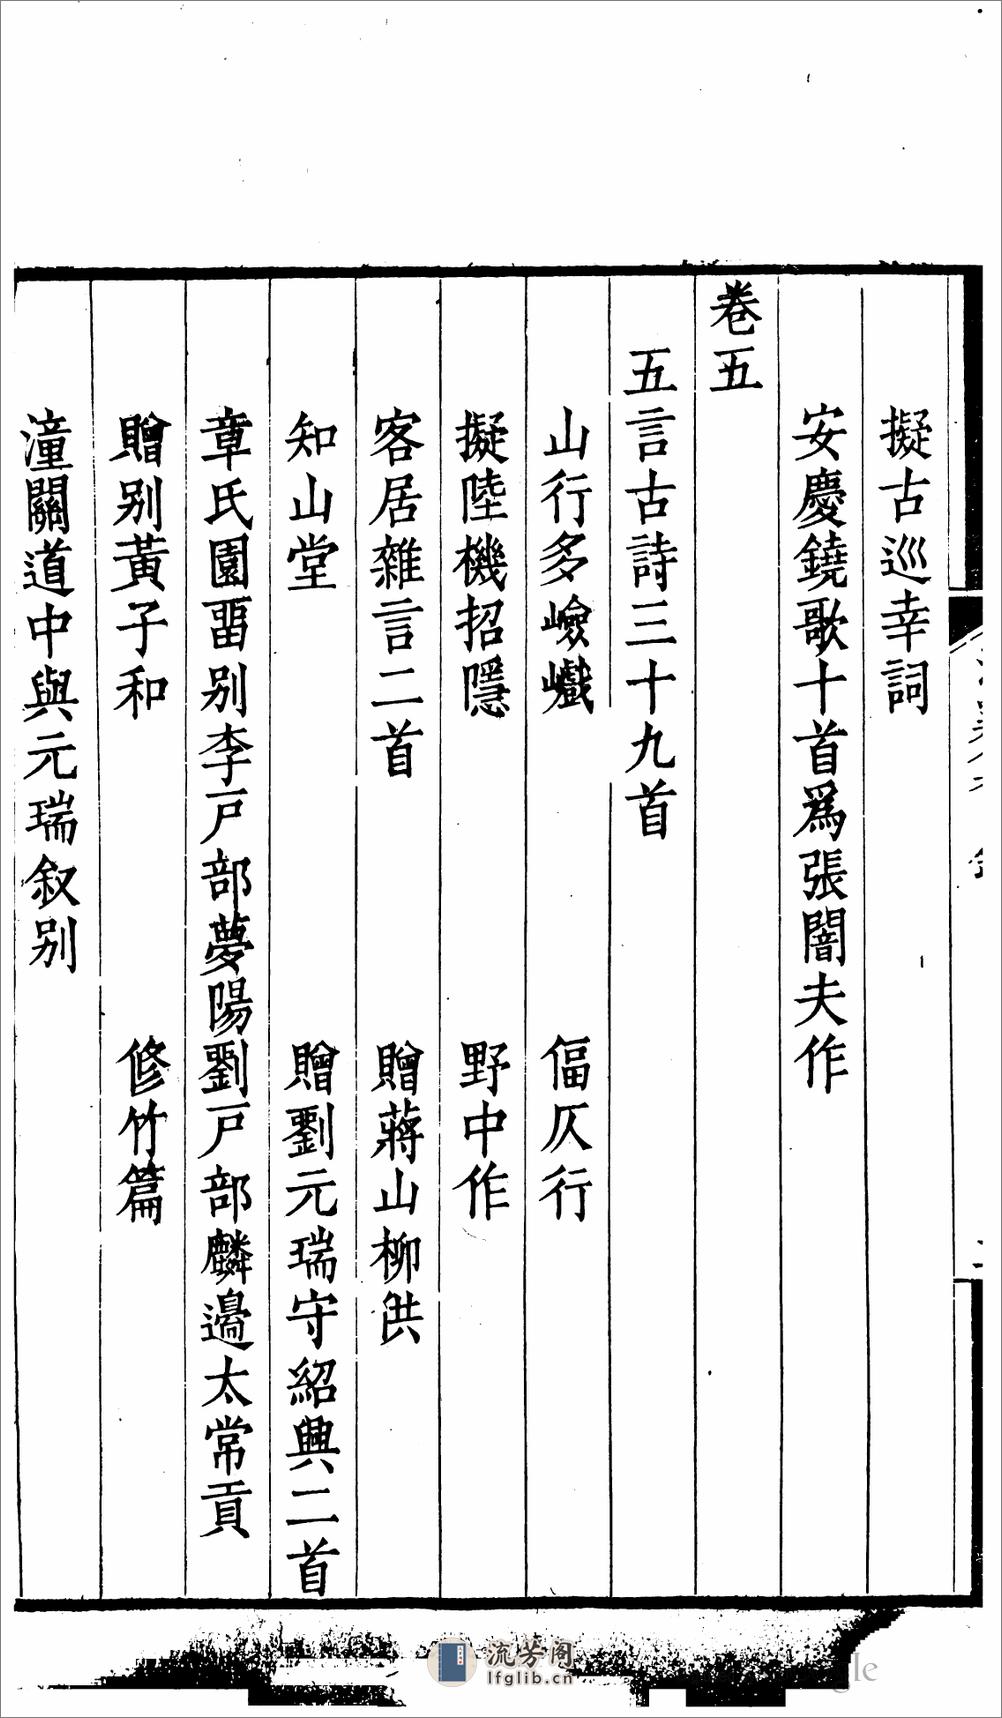 擬古巡幸詞
安慶鐃歌十首爲張闇夫作
卷五
五言古詩三十九首
山行多嶮巇　偪仄行
擬陸機招隱　野中作
客居雜言二首　贈蔣山柳洪
知山堂　贈劉元瑞守紹興二首
章氏園畱别李戸部夢陽劉戸部麟邉太常貢
贈别黃子和　修竹篇
潼關道中與元瑞叙别
流芳阁
lfglib.cn
gle